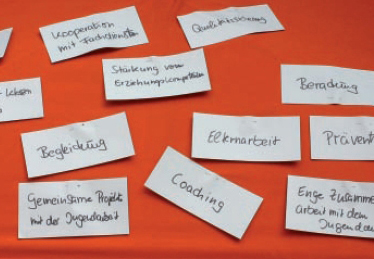 Kooperation
mit Fachdiensten
Qualitätssicherung
Stärkung von
Erziehungskompetenzen
Beratung
Leben
Begleitung
Elternarbeit
Prävent
Gemeinsame Projekte
mit der Jugendarbeit
Coaching
Enge Zusamme
arbeit mit dem